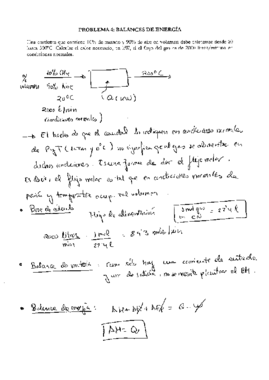 PROBLEMA 4: BALANCES DE ENERGÍA
Una corriente que contiene 10% de metano y 90% de aire en volumen debe calentarse desde 20
hasta 300ºC. Calcular el calor necesario, en kW, si el flujo del gas es de 2000 litros/minuto en
condiciones normales.
10% CH4
90% Aire
20ºC
300ºC
Q (kW)
2000 l/min
(condiciones normales)
• El hecho de que el caudal lo indiquen en condiciones normales
de P y T (1 atm y 0ºC) no significa que el gas se alimente en
dichas condiciones. Es una forma de dar el flujo molar.
Es decir, el flujo molar es tal que en condiciones normales de
presión y temperatura ocupa ese volumen.
• Base de cálculo
Flujo de alimentación
1 mol gas en CN = 22'4 l
2000 litros/min · 1 mol/22'4 l = 89'3 mol/min
• Balance de materia: Como sólo hay una corriente de entrada
y una de salida, no es necesario plantear el BM.
• Balance de energía: ΔH + ΔEp + ΔEk = Q - W
ΔH = Q